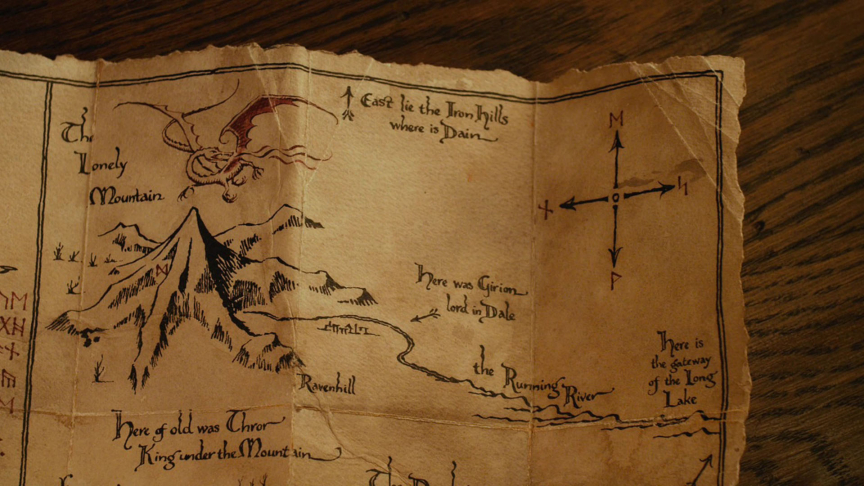 The
Lonely
Mountain
East lie the Iron Hills
where is Dain
Here was Girion
lord in Dale
the Running River
Here is
the gateway
of the Long
Lake
Ravenhill
Here of old was Thror
King under the Mountain